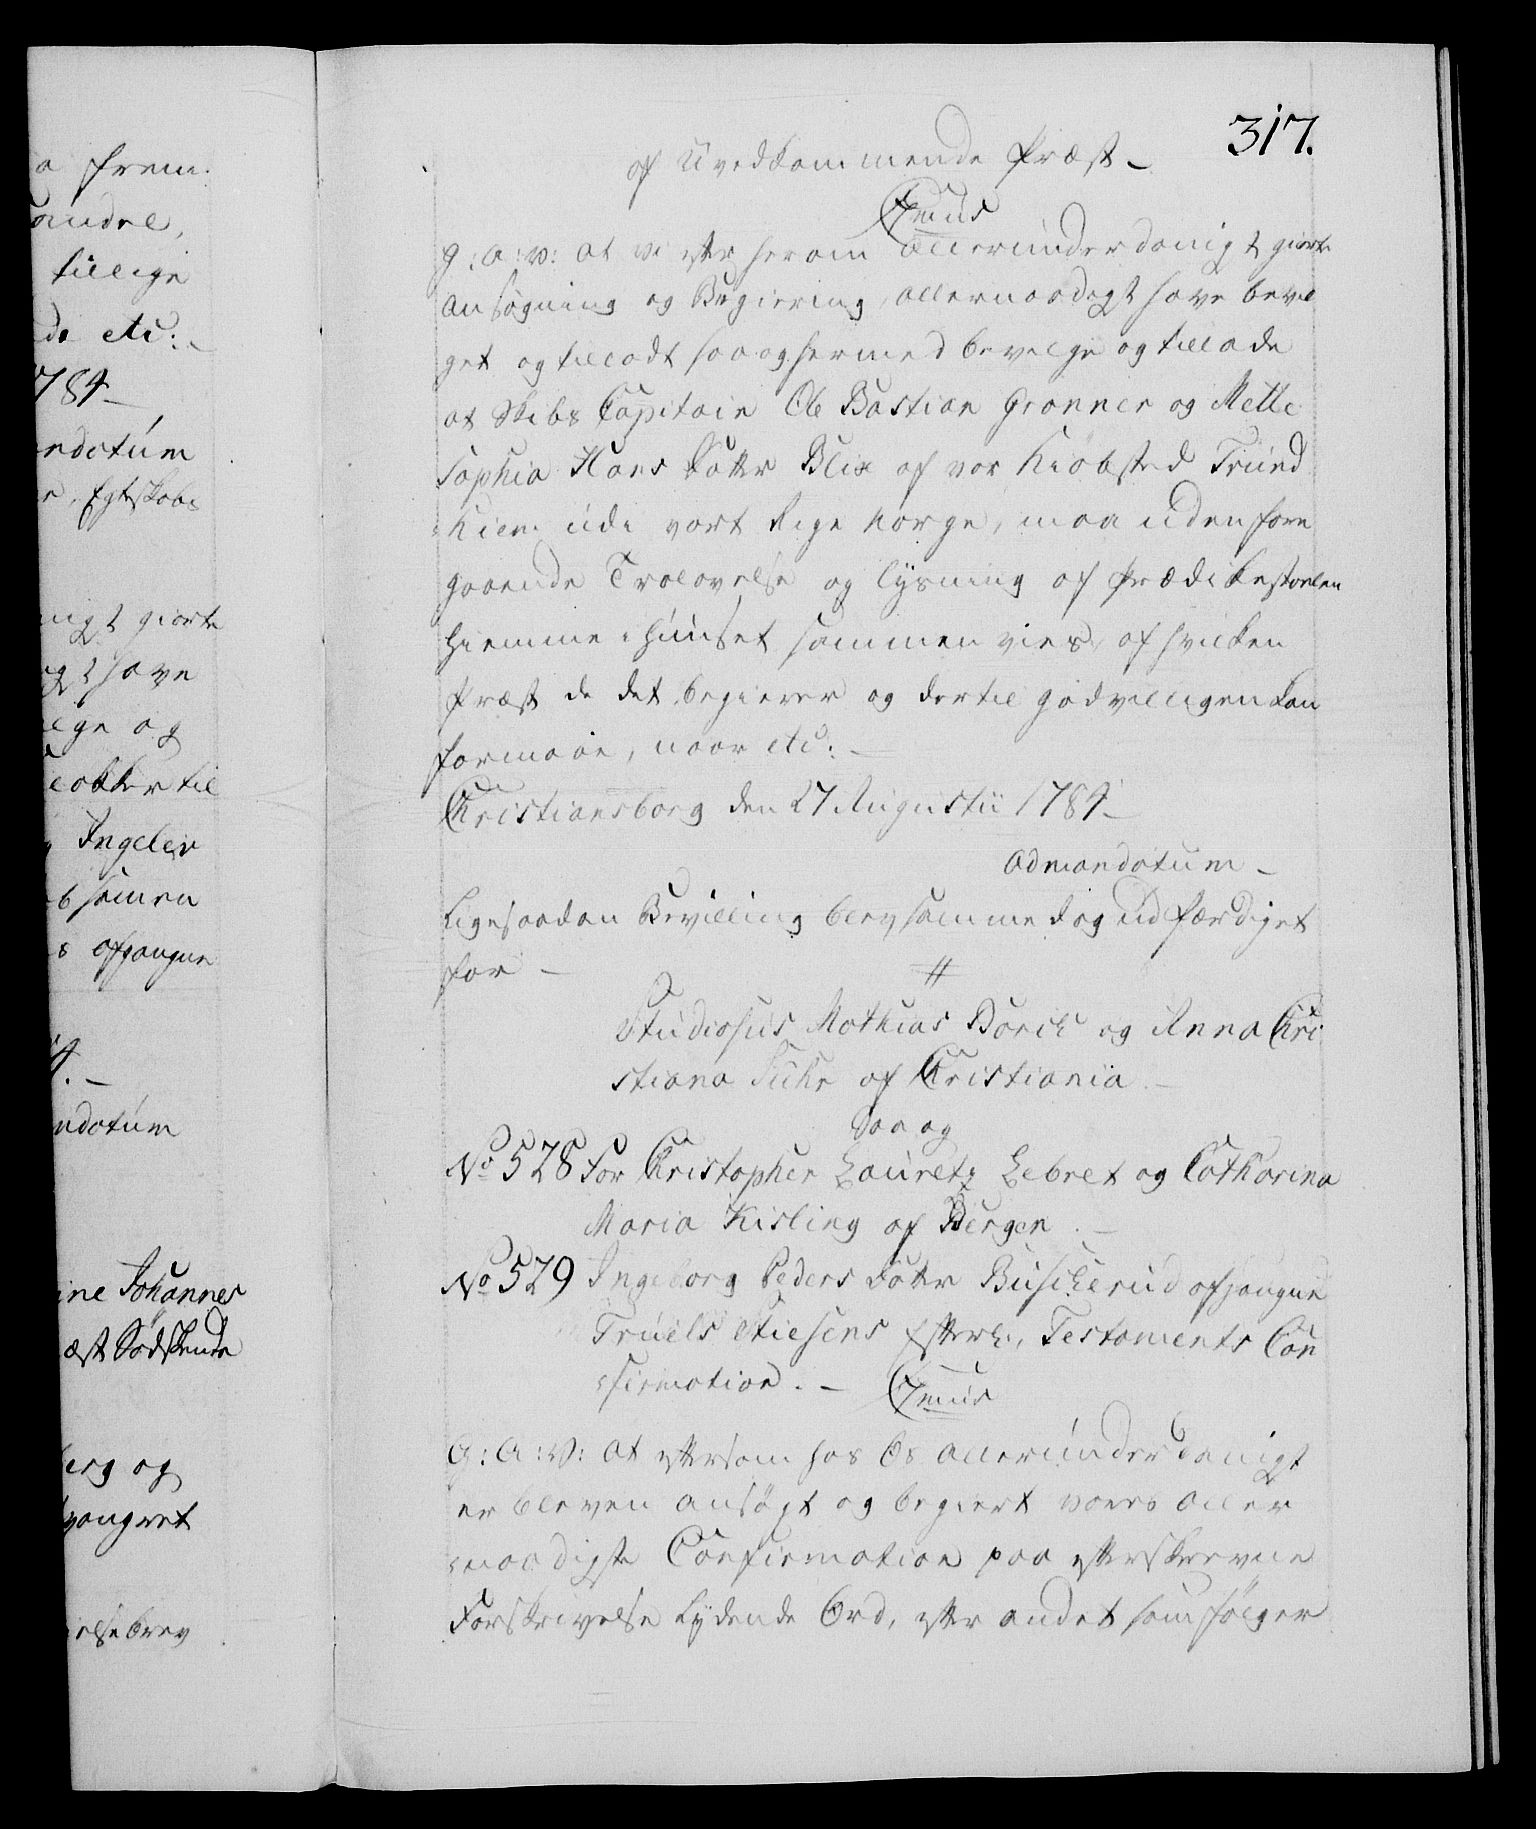 a frem:
andre,
tillige
de etc: _
1784 _
andatum
r, Egteskabs
nigt giorte
gt have
lge og
lokker til
g Ingelev
b samen
s afgangne
4. _
ndatum
ine Johannes
æst Sødskende
erg og
vangret
ielsebrev
317.
af Uvedkommende Præst _
Cfmus
G: A: V: at vi efter herom allerunderdanigt giorte
ansøgning og Begiering, allernaadigt have bevil
get og tilladt saa og hermed bevilge og tillade
at Skibs Capitain Ole Bastian Grønner og Mette
Sophia Hans Datter Blix af vor Kiøbsted Trund
hiem udi vort Rige Norge, maa uden fore
gaaende Trolovelse og lysning af Prædikestoelen
hiemme i Huuset sammen vies, af hvilken
Præst de det begierer og dertil godvilligen kan
formaae, naar etc: _
Christiansborg den 27 Augustii 1784 _
admandatum _
Ligesaadan Bevilling blev samme dag udfærdiget
for _ //
Studiosus Mathias Borch og Anna Chri
stiana Suhr af Christiania _
Saa og
No 528 for Christopher Lauretz Lebret og Catharina
Maria Kisling af Bergen . _
No 529 Ingeborg Peders Datter Buscherud afgangne
Truels Stiesens Efterl:, Testaments Con
firmation . _ Cfmus
G: A: V: at eftersom hos Os allerunderdanigt
er bleven ansøgt og begiert vores aller
naadigste Confirmation paa efterskrevne
Forskrivelse lydende Ord, efter andet som følger